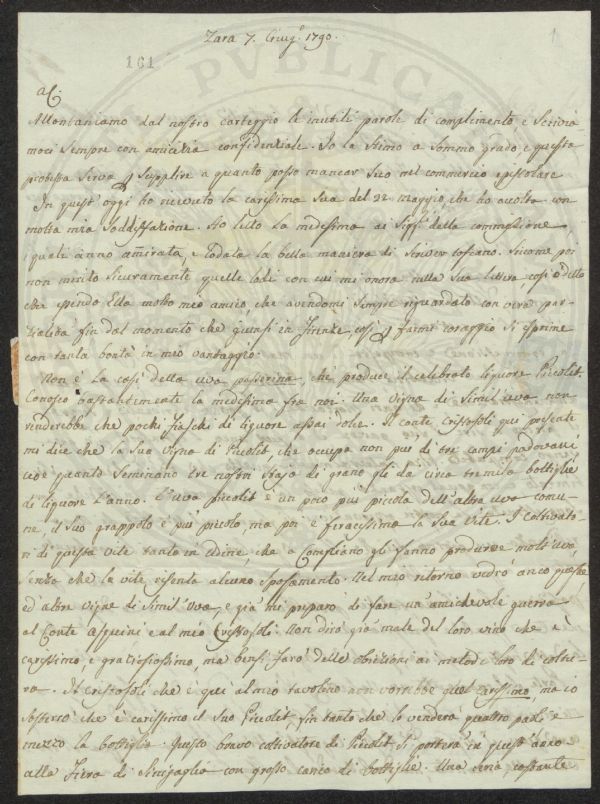 Zara 7. Giug.º 1790.
161
1
PVBLICA
A. C.
Allontaniamo dal nostro carteggio le inutili parole di complimento, e scrivia-
moci sempre con amicizia confidenziale. Io la stimo a sommo grado, e questa
protesta serva p supplire a quanto posso mancar seco nel commercio epistolare.
In quest'oggi ho ricevuto la carissima sua del 22 maggio, che ho accolta con
molta mia soddisfazione. Ho letto la medesima ai Sigri della commissione
quali anno amirata, e lodata la bella maniera di scriver toscano. Siccome poi
non merito sicuramente quelle lodi con cui mi onora nella sua lettera così
che essendo Ella molto mio amico, che avendomi sempre riguardato con vera par-
zialità fin dal momento che giunsi in Firenze, così p farmi coraggio si esprime
con tanta bontà in mio vantaggio.
Non è la così detta uva passerina, che produce il celebrato liquore Picolit.
Conosco bastantemente la medesima fra noi. Una vigna di simil uva non
renderebbe che pochi fiaschi di liquore assai dolce. Il Conte Crissofoli qui presente
mi dice che la sua vigna di Picolit, che occupa non più di tre campi padovani,
cioè quanto seminano tre nostri staja di grano gli dà circa tremila bottiglie
di liquore l'anno. L'uva picolit è un poco più piccola dell'altra uva comu-
ne, il suo grappolo è più picolo, ma poi è feracissima la sua vite. I coltivato-
ri di questa vite tanto in Udine, che a Conegliano gli fanno produrre molt'uva,
senza che la vite risenta alcuno spossamento. Nel mio ritorno vedrò anco queste,
ed altre vigne di simil'uva, e già mi preparo di fare un'amichevole guerra
al Conte Asquini e al mio Crissofoli. Non dirò già male del loro vino che è
carissimo, e graziosissimo, ma bensì farò delle obiezioni ai metodi loro di coltu-
ra. Il Crissofoli che è quì al mio tavolino non vorrebbe quel carissimo, ma io
sosterrò che è carissimo il suo Picolit, fin tanto che lo venderà quattro paoli e
mezzo la bottiglia. Questo bravo coltivatore di Picolit si porterà in quest'anno
alla Fiera di Sinigaglia con grosso carico di bottiglie. Una seria costante